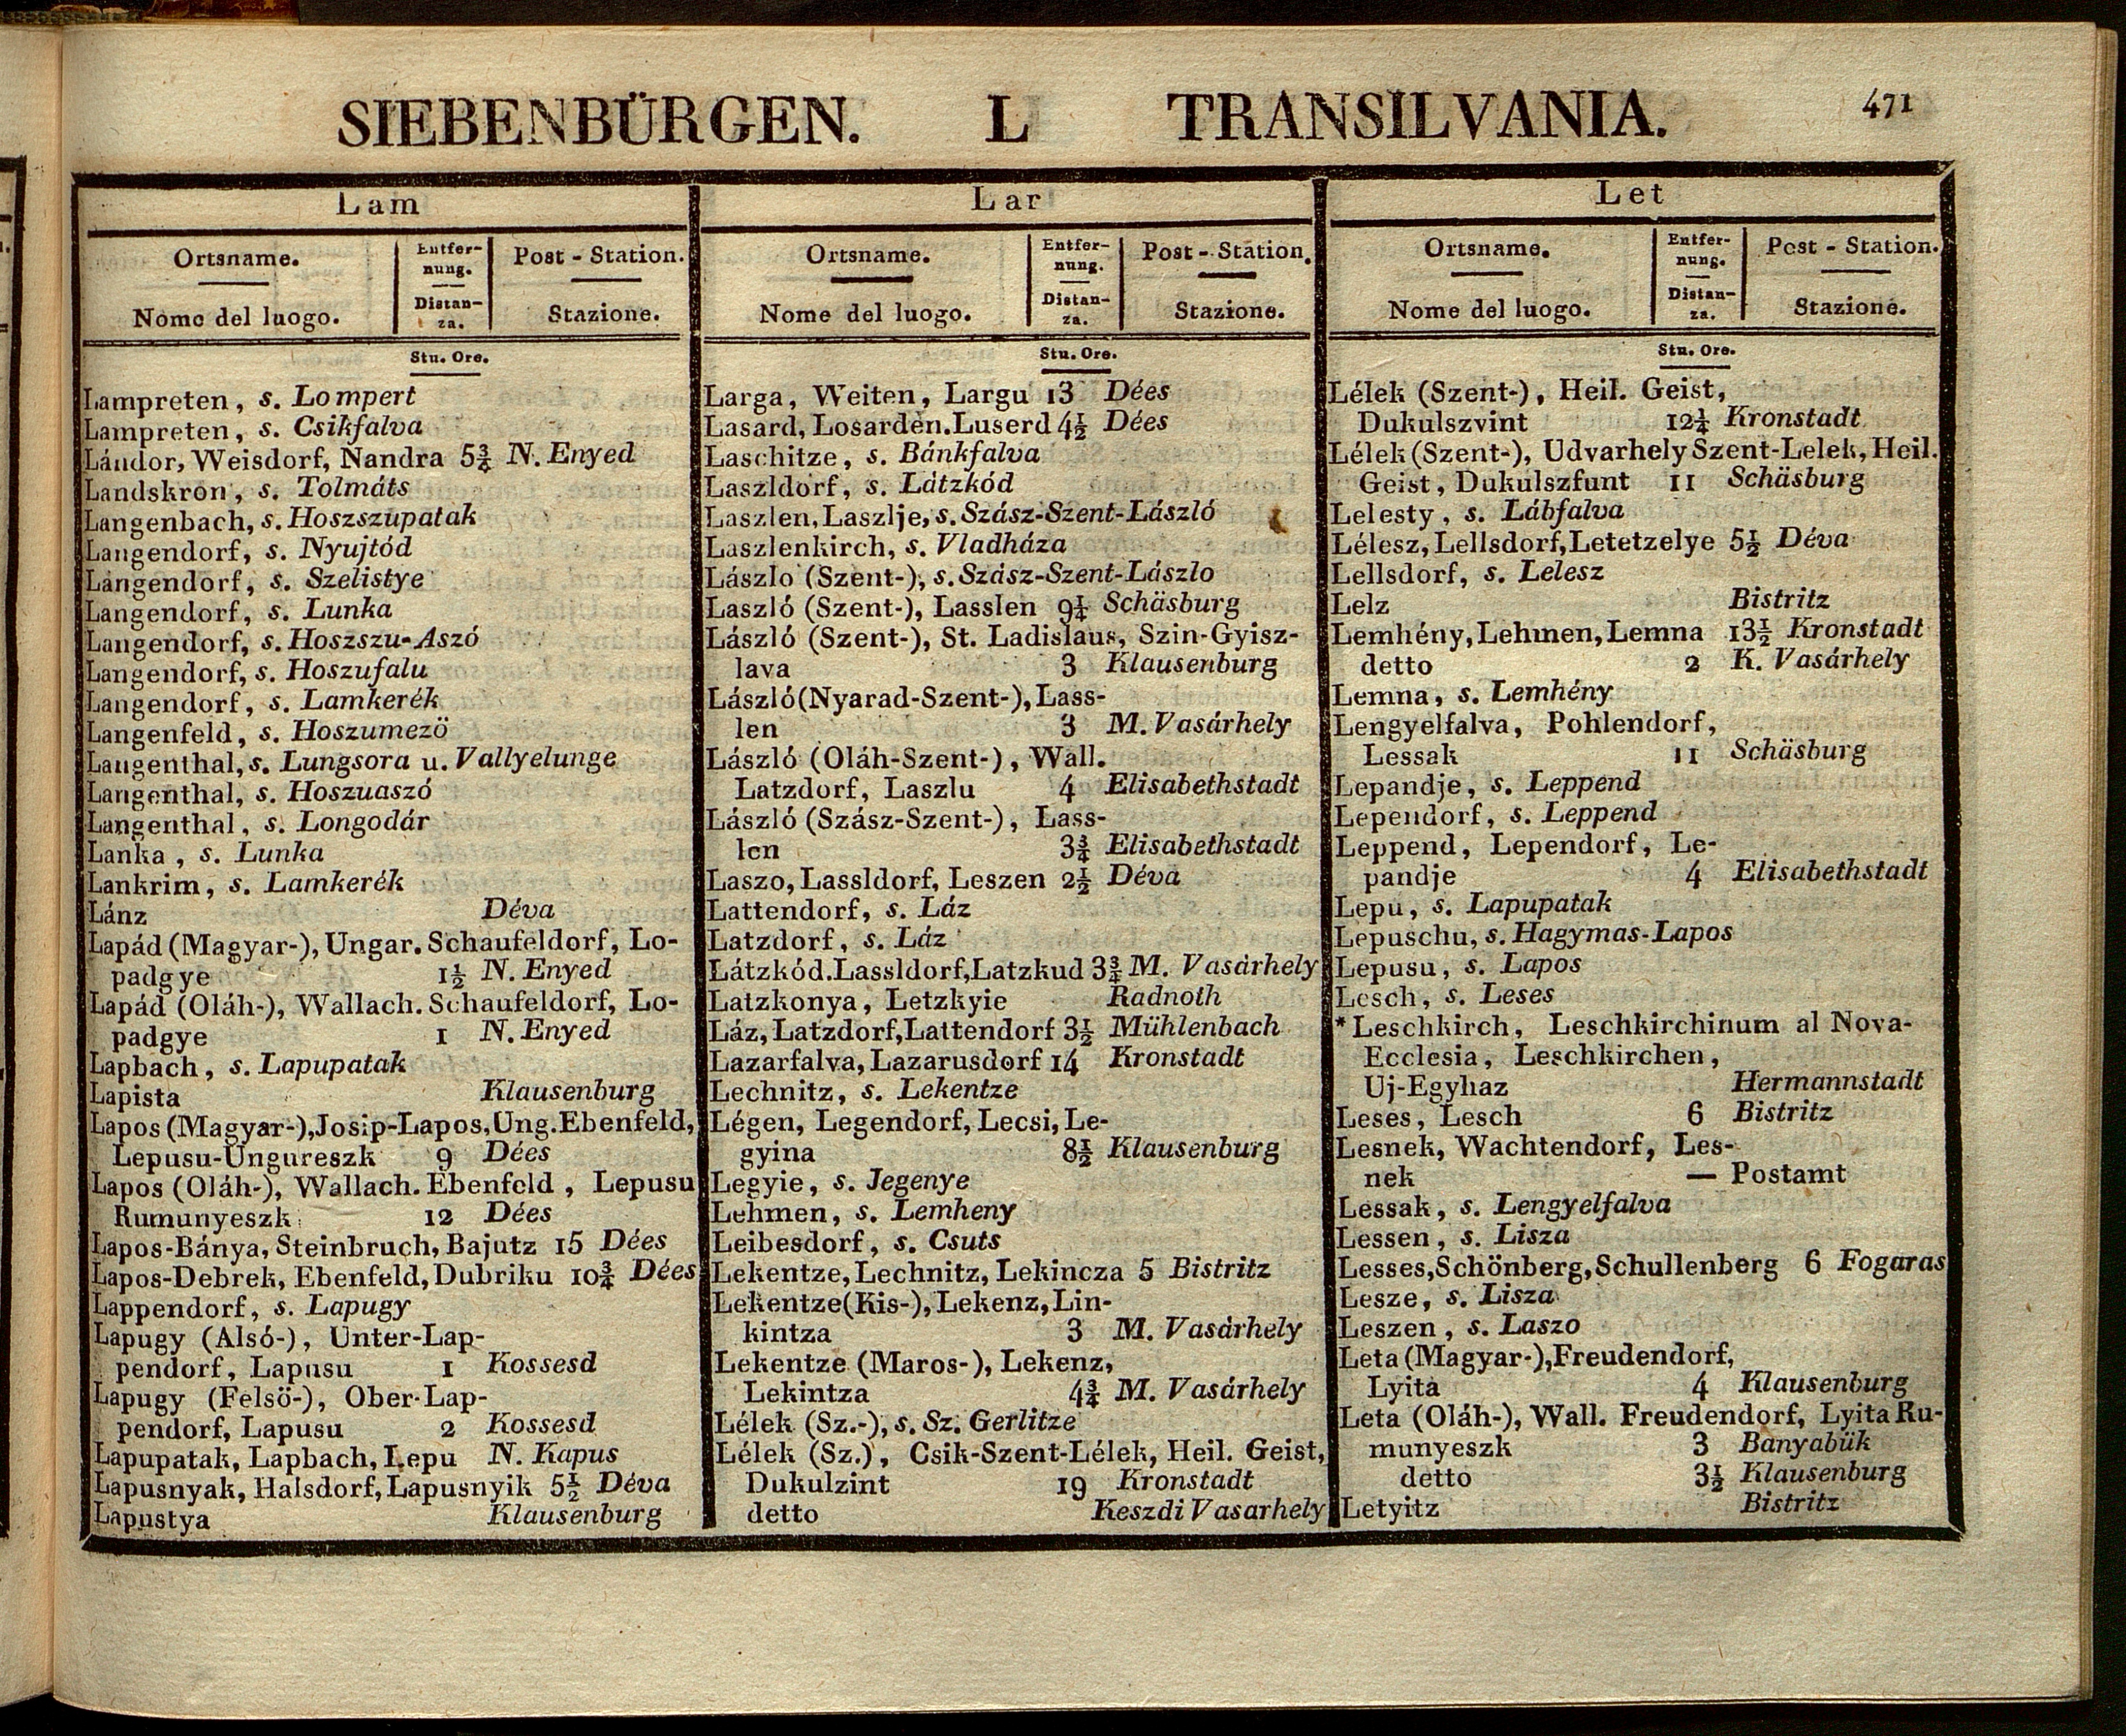 SIEBENBÜRGEN. L TRANSILVANIA. 471
Lam
Ortsname. Entfer- Post - Station.
nung.
Nome del luogo. Distan- Stazione.
za.
Stu. Ore.
Lampreten, s. Lompert
Lampreten, s. Csikfalva
Lándor, Weisdorf, Nandra 5¾ N. Enyed
Landskron, s. Tolmáts
Langenbach, s. Hoszszupatak
Langendorf, s. Nyujtód
Langendorf, s. Szelistye
Langendorf, s. Lunka
Langendorf, s. Hoszszu-Aszó
Langendorf, s. Hoszufalu
Langendorf, s. Lamkerék
Langenfeld, s. Hoszumezö
Langenthal, s. Lungsora u. Vallyelunge
Langenthal, s. Hoszuaszó
Langenthal, s. Longodár
Lanka, s. Lunka
Lankrim, s. Lamkerék
Lánz Déva
Lapád (Magyar-), Ungar. Schaufeldorf, Lo-
padgye 1½ N. Enyed
Lapád (Oláh-), Wallach. Schaufeldorf, Lo-
padgye 1 N. Enyed
Lapbach, s. Lapupatak
Lapista Klausenburg
Lapos (Magyar-), Josip-Lapos, Ung. Ebenfeld,
Lepusu-Ungureszk 9 Dées
Lapos (Oláh-), Wallach. Ebenfeld, Lepusu
Rumunyeszk 12 Dées
Lapos-Bánya, Steinbruch, Bajutz 15 Dées
Lapos-Debrek, Ebenfeld, Dubriku 10¾ Dées
Lappendorf, s. Lapugy
Lapugy (Alsó-), Unter-Lap-
pendorf, Lapusu 1 Kossesd
Lapugy (Felsö-), Ober-Lap-
pendorf, Lapusu 2 Kossesd
Lapupatak, Lapbach, Lepu N. Kapus
Lapusnyak, Halsdorf, Lapusnyik 5½ Déva
Lapustya Klausenburg
Lar
Ortsname. Entfer- Post - Station.
nung.
Nome del luogo. Distan- Stazione.
za.
Stu. Ore.
Larga, Weiten, Largu 13 Dées
Lasard, Losarden. Luserd 4½ Dées
Laschitze, s. Bánkfalva
Laszldorf, s. Látzkód
Laszlen, Laszlje, s. Szász-Szent-László
Laszlenkirch, s. Vladháza
Lászlo (Szent-), s. Szász-Szent-Lászlo
Laszló (Szent-), Lasslen 9¼ Schäsburg
László (Szent-), St. Ladislaus, Szin-Gyisz-
lava 3 Klausenburg
László (Nyarad-Szent-), Lass-
len 3 M. Vasárhely
László (Oláh-Szent-), Wall.
Latzdorf, Laszlu 4 Elisabethstadt
László (Szász-Szent-), Lass-
len 3¾ Elisabethstadt
Laszo, Lassldorf, Leszen 2½ Déva
Lattendorf, s. Láz
Latzdorf, s. Láz
Látzkód. Lassldorf, Latzkud 3¾ M. Vasárhely
Latzkonya, Letzkyie Radnoth
Láz, Latzdorf, Lattendorf 3½ Mühlenbach
Lazarfalva, Lazarusdorf 14 Kronstadt
Lechnitz, s. Lekentze
Légen, Legendorf, Lecsi, Le-
gyina 8½ Klausenburg
Legyie, s. Jegenye
Lehmen, s. Lemheny
Leibesdorf, s. Csuts
Lekentze, Lechnitz, Lekincza 5 Bistritz
Lekentze (Kis-), Lekenz, Lin-
kintza 3 M. Vasárhely
Lekentze (Maros-), Lekenz,
Lekintza 4¾ M. Vasárhely
Lélek (Sz.-), s. Sz. Gerlitze
Lélek (Sz.), Csik-Szent-Lélek, Heil. Geist,
Dukulzint 19 Kronstadt
detto Keszdi Vasarhely
Let
Ortsname. Entfer- Post - Station.
nung.
Nome del luogo. Distan- Stazione.
za.
Stu. Ore.
Lélek (Szent-), Heil. Geist,
Dukulszvint 12¼ Kronstadt
Lélek (Szent-), Udvarhely Szent-Lelek, Heil.
Geist, Dukulszfunt 11 Schäsburg
Lelesty, s. Lábfalva
Lélesz, Lellsdorf, Letetzelye 5½ Déva
Lellsdorf, s. Lelesz
Lelz Bistritz
Lemhény, Lehmen, Lemna 13½ Kronstadt
detto 2 K. Vasárhely
Lemna, s. Lemhény
Lengyelfalva, Pohlendorf,
Lessak 11 Schäsburg
Lepandje, s. Leppend
Lependorf, s. Leppend
Leppend, Lependorf, Le-
pandje 4 Elisabethstadt
Lepu, s. Lapupatak
Lepuschu, s. Hagymas-Lapos
Lepusu, s. Lapos
Lesch, s. Leses
*Leschkirch, Leschkirchinum al Nova-
Ecclesia, Leschkirchen,
Uj-Egyhaz Hermannstadt
Leses, Lesch 6 Bistritz
Lesnek, Wachtendorf, Les-
nek — Postamt
Lessak, s. Lengyelfalva
Lessen, s. Lisza
Lesses, Schönberg, Schullenberg 6 Fogaras
Lesze, s. Lisza
Leszen, s. Laszo
Leta (Magyar-), Freudendorf,
Lyita 4 Klausenburg
Leta (Oláh-), Wall. Freudendorf, Lyita Ru-
munyeszk 3 Banyabük
detto 3½ Klausenburg
Letyitz Bistritz